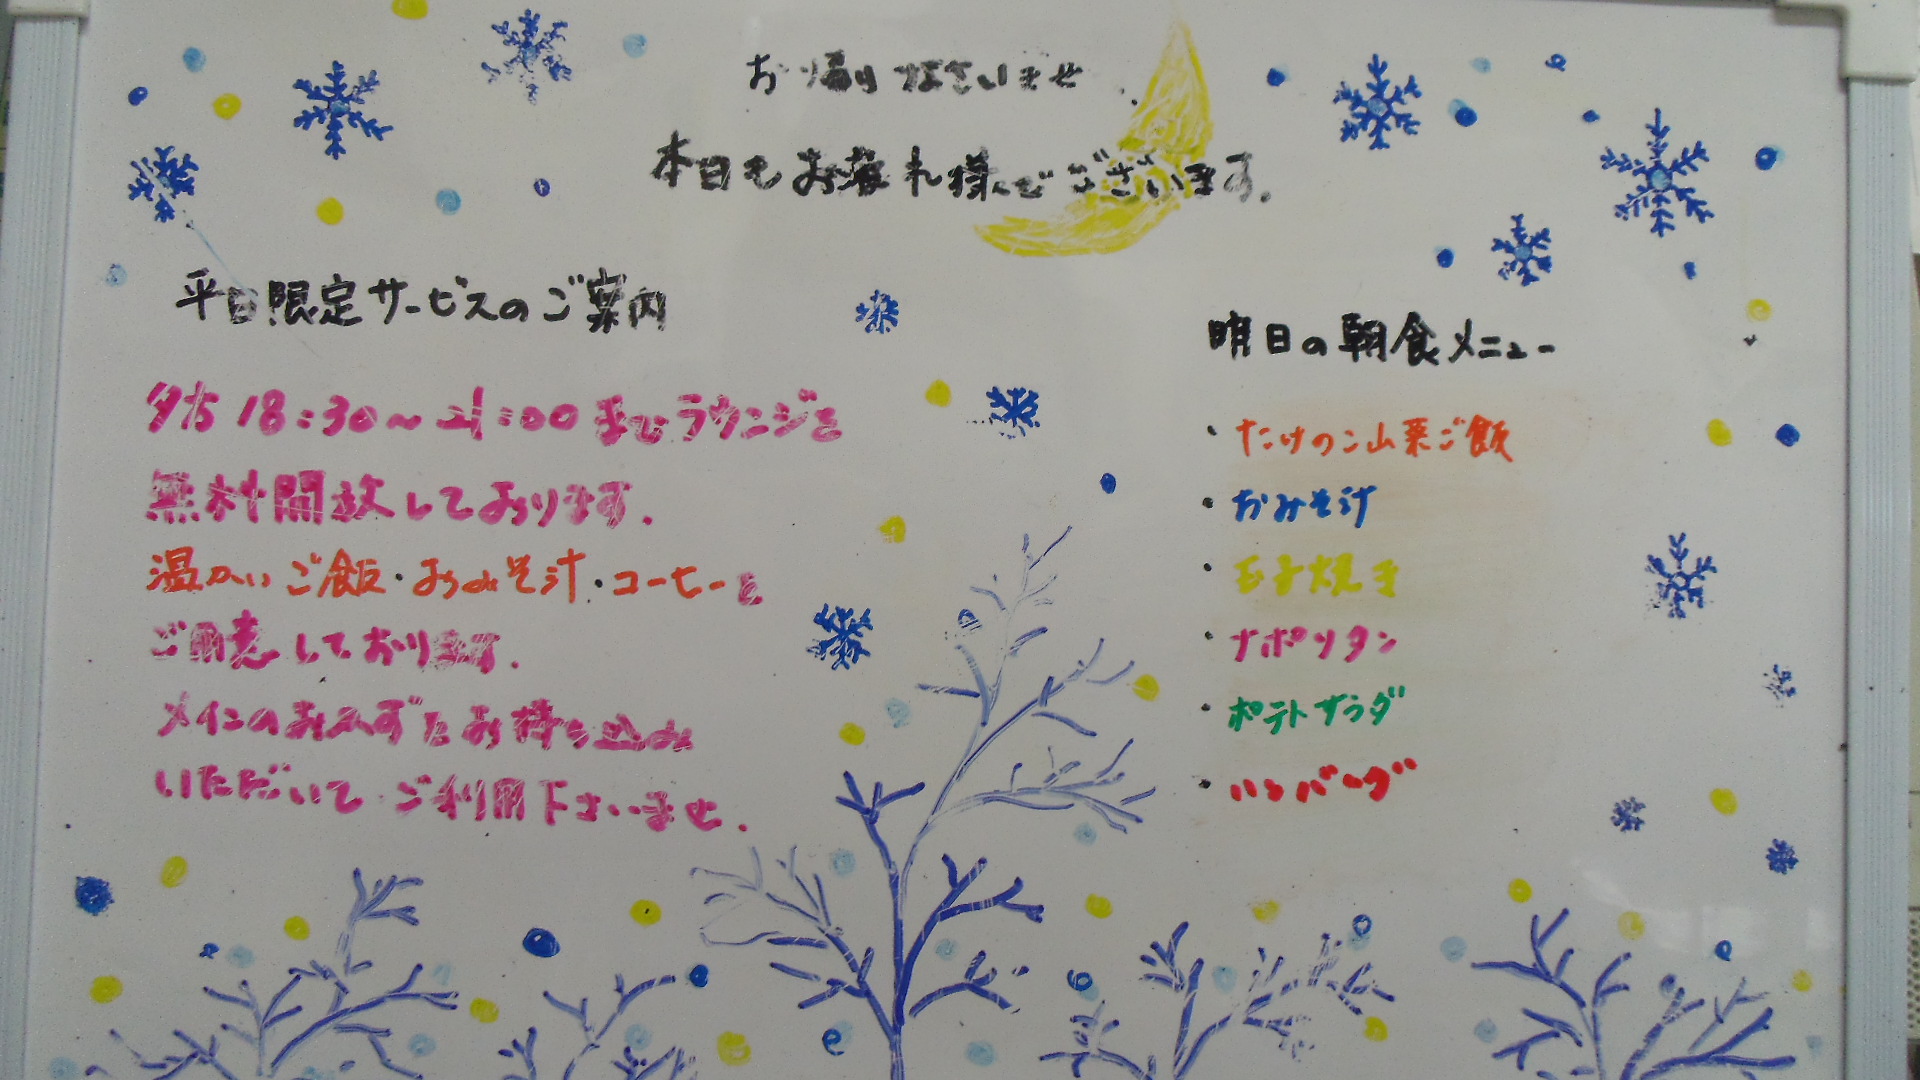 お帰りなさいませ
本日もお疲れ様でございます。
平日限定サービスのご案内
夕方 18:30～21:00までラウンジを
無料開放しております。
温かいご飯・おみそ汁・コーヒーを
ご用意しております。
メインのおかずをお持ち込み
いただいてご利用下さいませ。
明日の朝食メニュー
・たけのこ山菜ご飯
・おみそ汁
・玉子焼き
・ナポリタン
・ポテトサラダ
・ハンバーグ